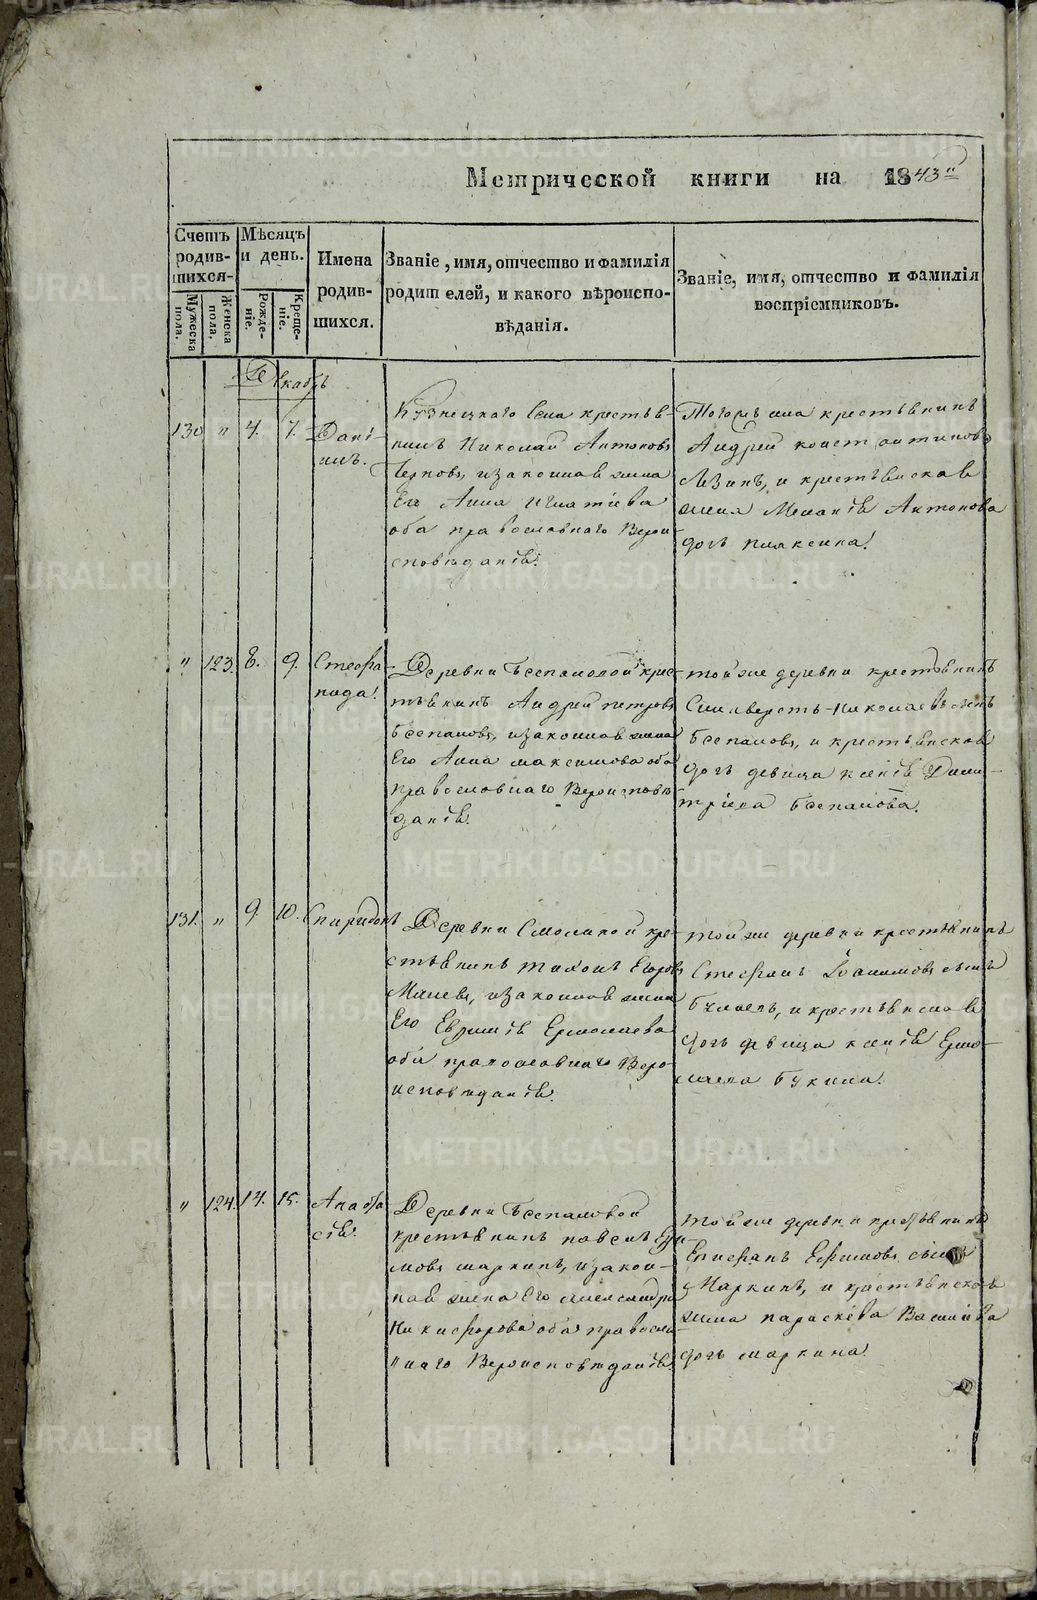 Метрической книги на 1843й
Счетъ родив-шихся-
Мѣсяцъ и день.
Имена родив-шихся.
Званіе, имя, отчество и фамилія родителей, и какого вѣроиспо-вѣданія.
Званіе, имя, отчество и фамилія воспріємниковъ.
Мужеска пола.
Женска пола.
Рожде-ніе.
Креще-ніе.
Декабрь
130 " 4. 7. Дані-
илъ.
Кузнецкаго села крестья-
нинъ Николай Антоновъ
изаконная жена
Его Анна Игнатіева
оба православнаго Верои
сповѣданія.
Тогожъ села крестьянинъ
Андрей Констоантиновъ
и крестьянская
жена Меланія Антонова
дочь
" 123. 8. 9. Стефа-
нида.
Деревни Беспаловой крес-
тьянинъ Андрей Петровъ
Беспаловъ, изаконная жена
Его Анна Максимова оба
православнаго Вероисповѣ
данія.
тойже деревни крестьянинъ
Силиверстъ Николаевъ сынъ
Беспаловъ, и крестьянская
дочь девица Ксенія Дими-
тріева Беспалова.
131. " 9. 10. Спиридонъ
Деревни Смолиной кре-
стьянинъ Тихонъ Егоровъ
изаконная жена
Его Евдокія Ермолаева
оба православнаго Веро-
исповѣданія.
тойже деревни крестьянинъ
Стефанъ Іоакимовъ сынъ
и крестьянская
дочь девица Ксенія Ермо-
лаева Букина.
" 124. 14. 15. Анаста
сія.
Деревни Беспаловой
крестьянинъ Павелъ Ефи-
мовъ Маркинъ, изакон-
ная жена Его Александра
Никифорова оба правосла
внаго Вероисповѣданія.
тойже деревни крестьянинъ
Епифанъ Ефимовъ сынъ
Маркинъ, и крестьянская
жена Параскева Василіева
дочь Маркина.
METRIKI.GASO-URAL.RU